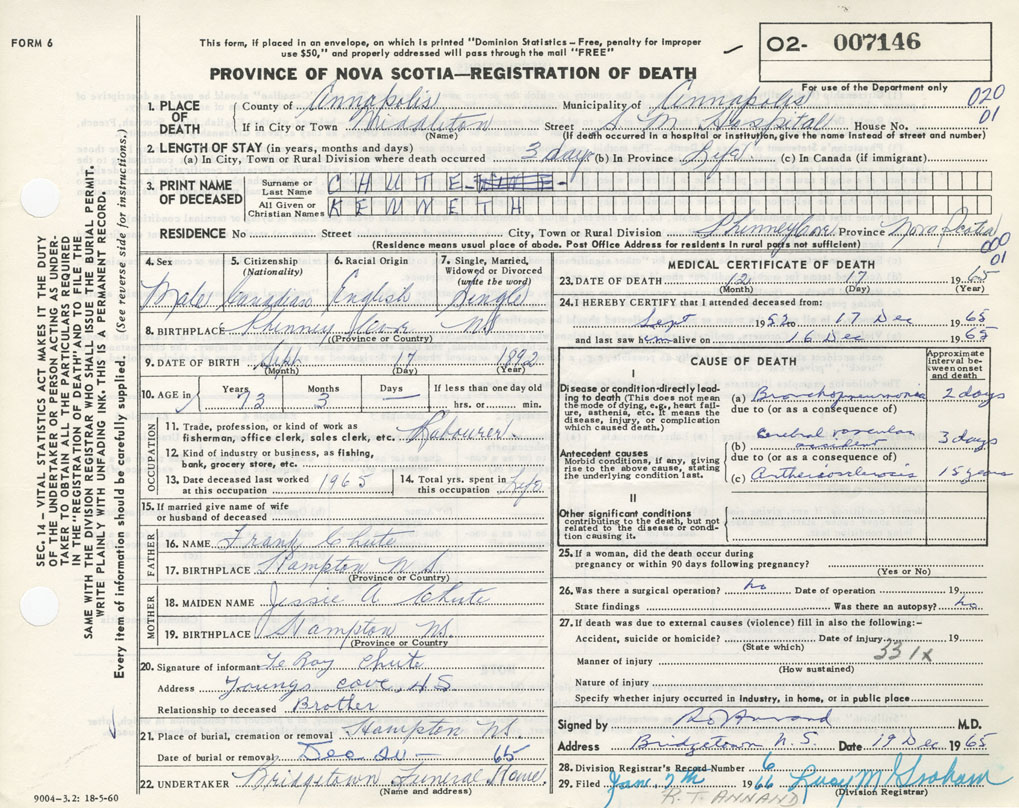 FORM 6
This form, if placed in an envelope, on which is printed "Dominion Statistics – Free, penalty for improper
use $50," and properly addressed will pass through the mail "FREE"
02- 007146
For use of the Department only
PROVINCE OF NOVA SCOTIA—REGISTRATION OF DEATH
020
01
1. PLACE OF DEATH
County of Annapolis Municipality of Annapolis
If in City or Town Middleton Street S M Hospital House No.
(Name) (If death occurred in a hospital or institution, give the name instead of street and number)
2. LENGTH OF STAY (in years, months and days)
(a) In City, Town or Rural Division where death occurred 3 days (b) In Province Life (c) In Canada (if immigrant)
3. PRINT NAME OF DECEASED
Surname or Last Name CHUTE
All Given or Christian Names KENNETH
RESIDENCE No Street City, Town or Rural Division Phinney Cove Province Nova Scotia
(Residence means usual place of abode. Post Office Address for residents in rural parts not sufficient)
000
01
4. Sex Male
5. Citizenship (Nationality) Canadian
6. Racial Origin English
7. Single, Married, Widowed or Divorced (write the word) Single
8. BIRTHPLACE Phinney Cove NS
(Province or Country)
9. DATE OF BIRTH Sept 17 1892
(Month) (Day) (Year)
10. AGE in Years 73 Months 3 Days — If less than one day old hrs. or min.
OCCUPATION
11. Trade, profession, or kind of work as
fisherman, office clerk, sales clerk, etc. Labourer
12. Kind of industry or business, as fishing,
bank, grocery store, etc.
13. Date deceased last worked at this occupation 1965
14. Total yrs. spent in this occupation Life
15. If married give name of wife
or husband of deceased
FATHER
16. NAME Frank Chute
17. BIRTHPLACE Hampton N S
(Province or Country)
MOTHER
18. MAIDEN NAME Jessie A Chute
19. BIRTHPLACE Hampton NS.
(Province or Country)
20. Signature of informant Le Roy Chute
Address Youngs Cove, NS
Relationship to deceased Brother
21. Place of burial, cremation or removal Hampton NS.
Date of burial or removal Dec 65
22. UNDERTAKER Bridgetown Funeral Home.
(Name and address)
9004–3.2: 18-5-60
MEDICAL CERTIFICATE OF DEATH
23. DATE OF DEATH 12 17 1965
(Month) (Day) (Year)
24. I HEREBY CERTIFY that I attended deceased from:
Sept 1952 to 17 Dec 1965
and last saw him alive on 16 Dec 1965
CAUSE OF DEATH
Approximate interval between onset and death
I
Disease or condition directly leading to death (This does not mean the mode of dying, e.g., heart failure, asthenia, etc. It means the disease, injury, or complication which caused death.)
(a) Bronchopneumonia 2 days
due to (or as a consequence of)
Antecedent causes
Morbid conditions, if any, giving rise to the above cause, stating the underlying condition last.
(b) Cerebral vascular accident 3 days
due to (or as a consequence of)
(c) Artheriosclerosis 15 years
II
Other significant conditions
contributing to the death, but not related to the disease or condition causing it.
25. If a woman, did the death occur during
pregnancy or within 90 days following pregnancy?
(Yes or No)
26. Was there a surgical operation? no Date of operation 19
State findings Was there an autopsy? no
27. If death was due to external causes (violence) fill in also the following:–
Accident, suicide or homicide? Date of injury 19
(State which)
331X
Manner of injury
(How sustained)
Nature of injury
Specify whether injury occurred in industry, in home, or in public place
Signed by M.D.
Address Bridgetown N.S. Date 19 Dec 1965
28. Division Registrar's Record Number 6
29. Filed Jan 7th 1966 Lucy M Graham
(Division Registrar)
R. T. ANNAND
SEC. 14 – VITAL STATISTICS ACT MAKES IT THE DUTY
OF THE UNDERTAKER OR PERSON ACTING AS UNDER-
TAKER TO OBTAIN ALL THE PARTICULARS REQUIRED
IN THE "REGISTRATION OF DEATH" AND TO FILE THE
SAME WITH THE DIVISION REGISTRAR WHO SHALL ISSUE THE BURIAL PERMIT.
WRITE PLAINLY WITH UNFADING INK. THIS IS A PERMANENT RECORD.
Every item of information should be carefully supplied. (See reverse side for instructions.)